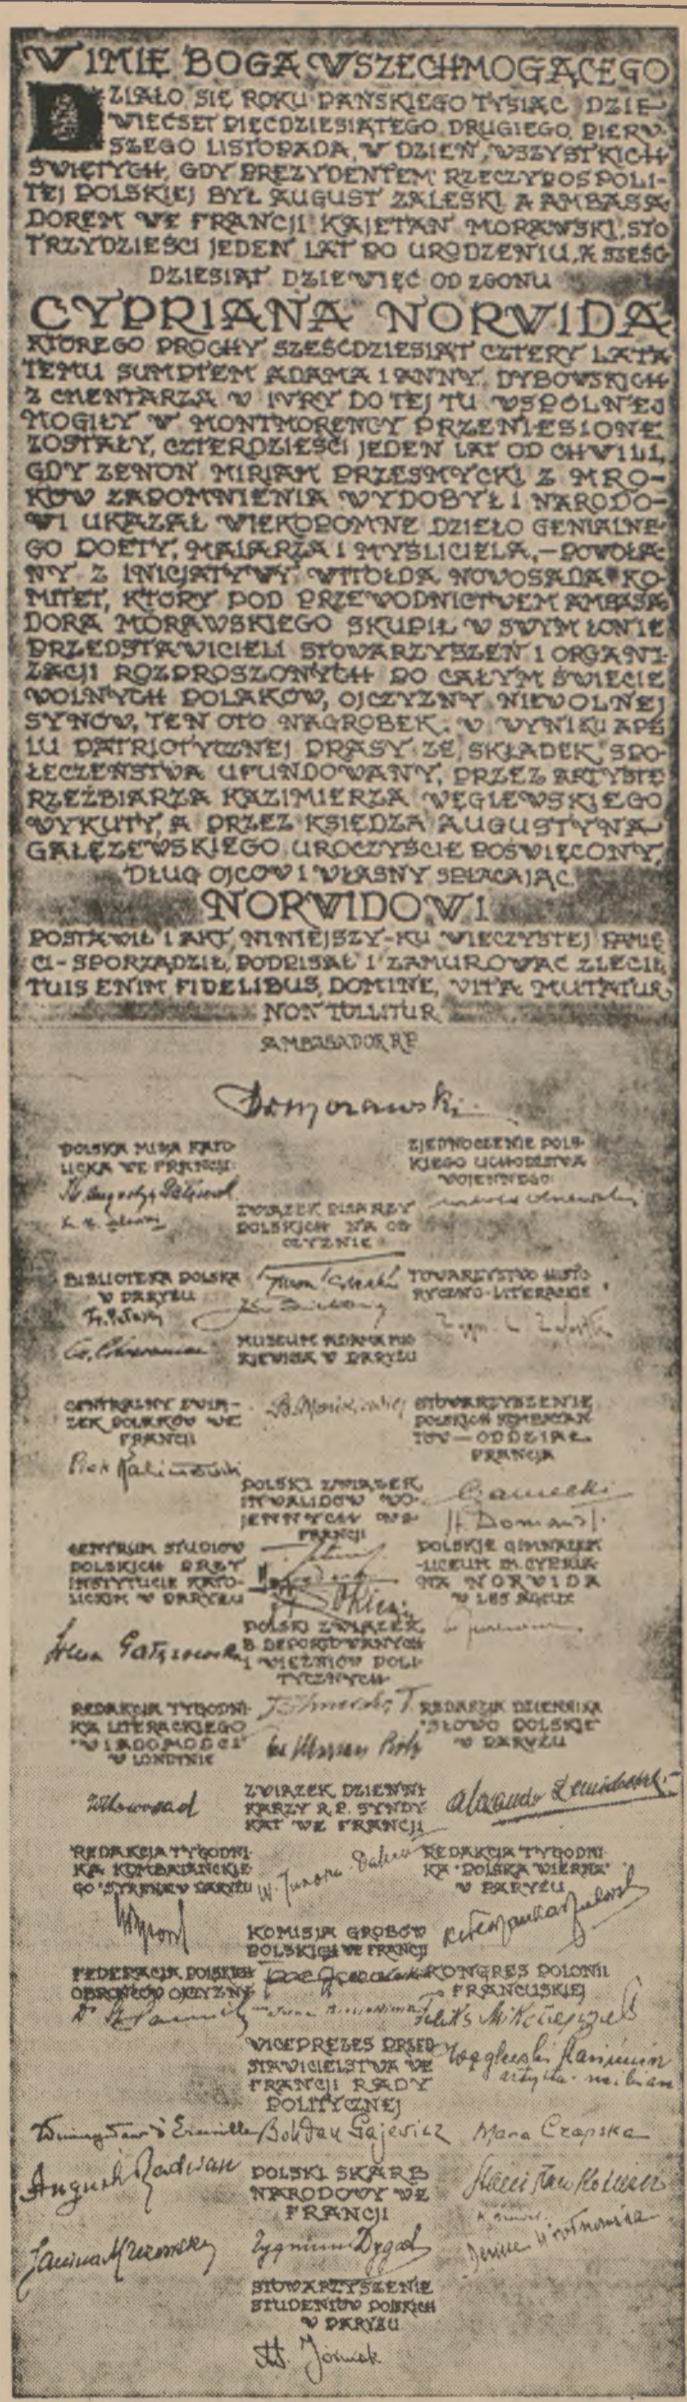 W IMIĘ BOGA WSZECHMOGĄCEGO
DZIAŁO SIĘ ROKU PAŃSKIEGO TYSIĄC DZIE-
WIĘĆSET PIĘĆDZIESIĄTEGO DRUGIEGO, PIERW-
SZEGO LISTOPADA, W DZIEŃ WSZYSTKICH
ŚWIĘTYCH, GDY PREZYDENTEM RZECZYPOSPOLI-
TEJ POLSKIEJ BYŁ AUGUST ZALESKI, A AMBASA-
DOREM WE FRANCJI KAJETAN MORAWSKI, STO
TRZYDZIEŚCI JEDEN LAT PO URODZENIU, A SZEŚĆ-
DZIESIĄT DZIEWIĘĆ OD ZGONU
CYPRIANA NORWIDA
KTÓREGO PROCHY SZEŚĆDZIESIĄT CZTERY LATA
TEMU SUMPTEM ADAMA I ANNY DYBOWSKICH
Z CMENTARZA W IVRY DO TEJ TU WSPÓLNEJ
MOGIŁY W MONTMORENCY PRZENIESIONE
ZOSTAŁY, CZTERDZIEŚCI JEDEN LAT OD CHWILI,
GDY ZENON MIRIAM PRZESMYCKI Z MRO-
KÓW ZAPOMNIENIA WYDOBYŁ I NARODO-
WI UKAZAŁ WIEKOPOMNE DZIEŁO GENIALNE-
GO POETY, MALARZA I MYŚLICIELA, – POWOŁA-
NY Z INICJATYWY WITOLDA NOWOSADA KO-
MITET, KTÓRY POD PRZEWODNICTWEM AMBASA-
DORA MORAWSKIEGO SKUPIŁ W SWYM ŁONIE
PRZEDSTAWICIELI STOWARZYSZEŃ I ORGANI-
ZACJI ROZPROSZONYCH PO CAŁYM ŚWIECIE
WOLNYCH POLAKÓW, OJCZYZNY NIEWOLNEJ
SYNÓW, TEN OTO NAGROBEK, W WYNIKU APE-
LU PATRIOTYCZNEJ PRASY ZE SKŁADEK SPO-
ŁECZEŃSTWA UFUNDOWANY, PRZEZ ARTYSTĘ
RZEŹBIARZA KAZIMIERZA WĘGLEWSKIEGO
WYKUTY, A PRZEZ KSIĘDZA AUGUSTYNA
GAŁĘZEWSKIEGO UROCZYŚCIE POŚWIĘCONY,
DŁUG OJCÓW I WŁASNY SPŁACAJĄC,
NORWIDOWI
POSTAWIŁ I AKT NINIEJSZY-KU WIECZYSTEJ PAMIĘ-
CI-SPORZĄDZIŁ, PODPISAŁ I ZAMUROWAĆ ZLECIŁ
TUIS ENIM FIDELIBUS, DOMINE, VITA MUTATUR,
NON TOLLITUR
AMBASADOR RP
POLSKA MISJA KATO-
LICKA WE FRANCJI
ZJEDNOCZENIE POLS-
KIEGO UCHODŹSTWA
WOJENNEGO
ZWIĄZEK PISARZY
POLSKICH NA OB-
CZYŹNIE
BIBLIOTEKA POLSKA
W PARYŻU
TOWARZYSTWO HISTO
RYCZNO-LITERACKIE
MUZEUM ADAMA MIC
KIEWICZA W PARYŻU
CENTRALNY ZWIĄ-
ZEK POLAKÓW WE
FRANCJI
Piotr Kalinowski
STOWARZYSZENIE
POLSKICH KOMBATAN
TÓW – ODDZIAŁ
FRANCJA
POLSKI ZWIĄZEK
INWALIDÓW WO-
JENNYCH WE
FRANCJI
CENTRUM STUDIÓW
POLSKICH PRZY
INSTYTUCIE KATO-
LICKIM W PARYŻU
POLSKIE GIMNAZJUM
-LICEUM IM. CYPRIA-
NA NORWIDA
W LES AGEUX
POLSKI ZWIĄZEK
B. DEPORTOWANYCH
I WIĘŹNIÓW POLI-
TYCZNYCH
REDAKCJA TYGODNI-
KA LITERACKIEGO
"WIADOMOŚCI"
W LONDYNIE
WNowosad
REDAKCJA DZIENNIKA
"SŁOWO POLSKIE"
W PARYŻU
ZWIĄZEK DZIENNI-
KARZY R.P. SYNDY-
KAT WE FRANCJI
REDAKCJA TYGODNI-
KA KOMBATANCKIE-
GO "SYRENA" W PARYŻU
REDAKCJA TYGODNI-
KA "POLSKA WIERNA"
W PARYŻU
KOMISJA GROBÓW
POLSKICH WE FRANCJI
FEDERACJA POLSKICH
OBROŃCÓW OJCZYZNY
KONGRES POLONII
FRANCUSKIEJ
WICEPREZES PRZED
STAWICIELSTWA WE
FRANCJI RADY
POLITYCZNEJ
Bohdan Gajewicz
Maria Czapska
August Radwan
POLSKI SKARB
NARODOWY WE
FRANCJI
Zygmunt Dygat
STOWARZYSZENIE
STUDENTÓW POLSKICH
W PARYŻU